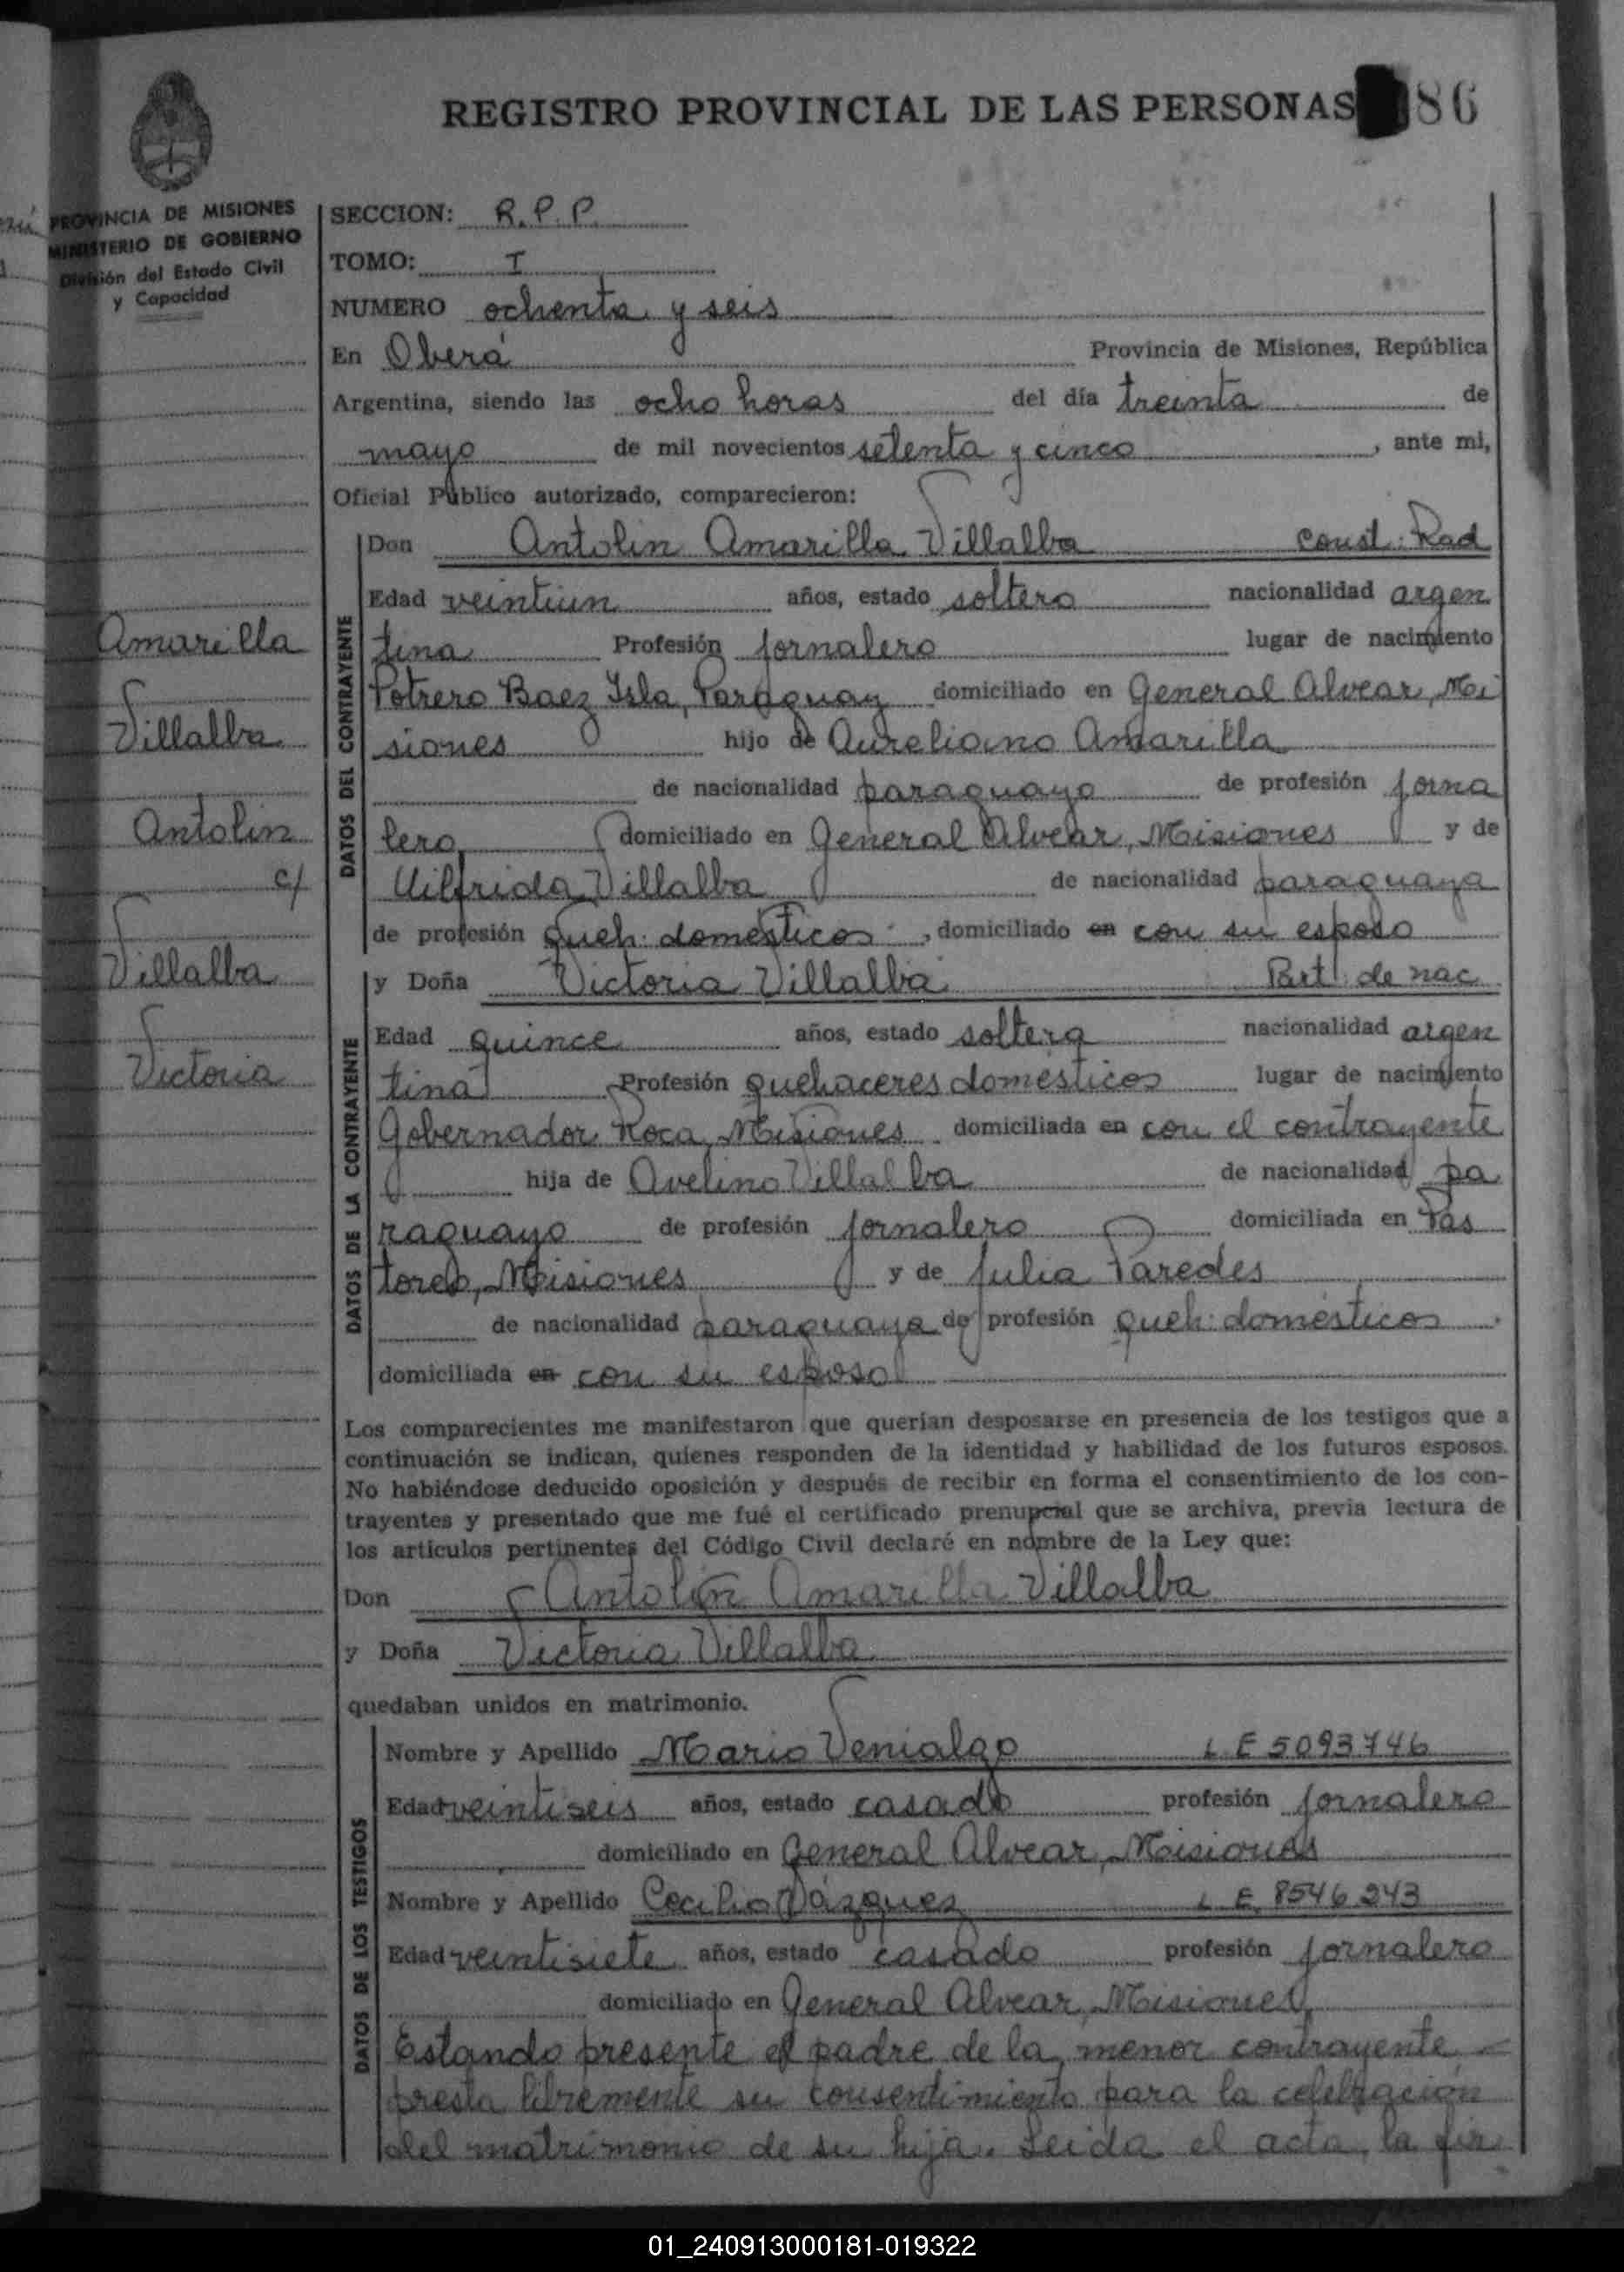 REGISTRO PROVINCIAL DE LAS PERSONAS 86
PROVINCIA DE MISIONES
MINISTERIO DE GOBIERNO
División del Estado Civil
y Capacidad
SECCION: R.P.P.
TOMO: I
NUMERO ochenta y seis
En Oberá Provincia de Misiones, República
Argentina, siendo las ocho horas del día treinta de
mayo de mil novecientos setenta y cinco, ante mi,
Oficial Público autorizado, comparecieron:
Amarilla
Villalba
Antolin
c/
Villalba
Victoria
DATOS DEL CONTRAYENTE
Don Antolin Amarilla Villalba Const. Rad
Edad veintiun años, estado soltero nacionalidad argen
tina Profesión jornalero lugar de nacimiento
Potrero Baez Isla, Paraguay domiciliado en General Alvear, Mi
siones hijo de Aureliano Amarilla
de nacionalidad paraguayo de profesión jorna
lero domiciliado en General Alvear, Misiones y de
Uilfrida Villalba de nacionalidad paraguaya
de profesión queh. domesticos, domiciliado en con su esposo
DATOS DE LA CONTRAYENTE
y Doña Victoria Villalba Part. de nac
Edad quince años, estado soltera nacionalidad argen
tina Profesión quehaceres domesticos lugar de nacimiento
Gobernador Roca, Misiones domiciliada en con el contrayente
hija de Avelino Villalba de nacionalidad pa
raguayo de profesión jornalero domiciliada en Pas
tores, Misiones y de Julia Paredes
de nacionalidad paraguaya de profesión queh. domésticos
domiciliada en con su esposo
Los comparecientes me manifestaron que querían desposarse en presencia de los testigos que a
continuación se indican, quienes responden de la identidad y habilidad de los futuros esposos.
No habiéndose deducido oposición y después de recibir en forma el consentimiento de los con-
trayentes y presentado que me fué el certificado prenupcial que se archiva, previa lectura de
los artículos pertinentes del Código Civil declaré en nombre de la Ley que:
Don Antolin Amarilla Villalba
y Doña Victoria Villalba
quedaban unidos en matrimonio.
DATOS DE LOS TESTIGOS
Nombre y Apellido Mario Venialgo L.E 5093746
Edad veintiseis años, estado casado profesión jornalero
domiciliado en General Alvear, Misiones
Nombre y Apellido Cecilio Vázquez L.E. 8546243
Edad veintisiete años, estado casado profesión jornalero
domiciliado en General Alvear, Misiones
Estando presente el padre de la menor contrayente
presta libremente su consentimiento para la celebración
del matrimonio de su hija. Leida el acta, la fir
01_240913000181-019322